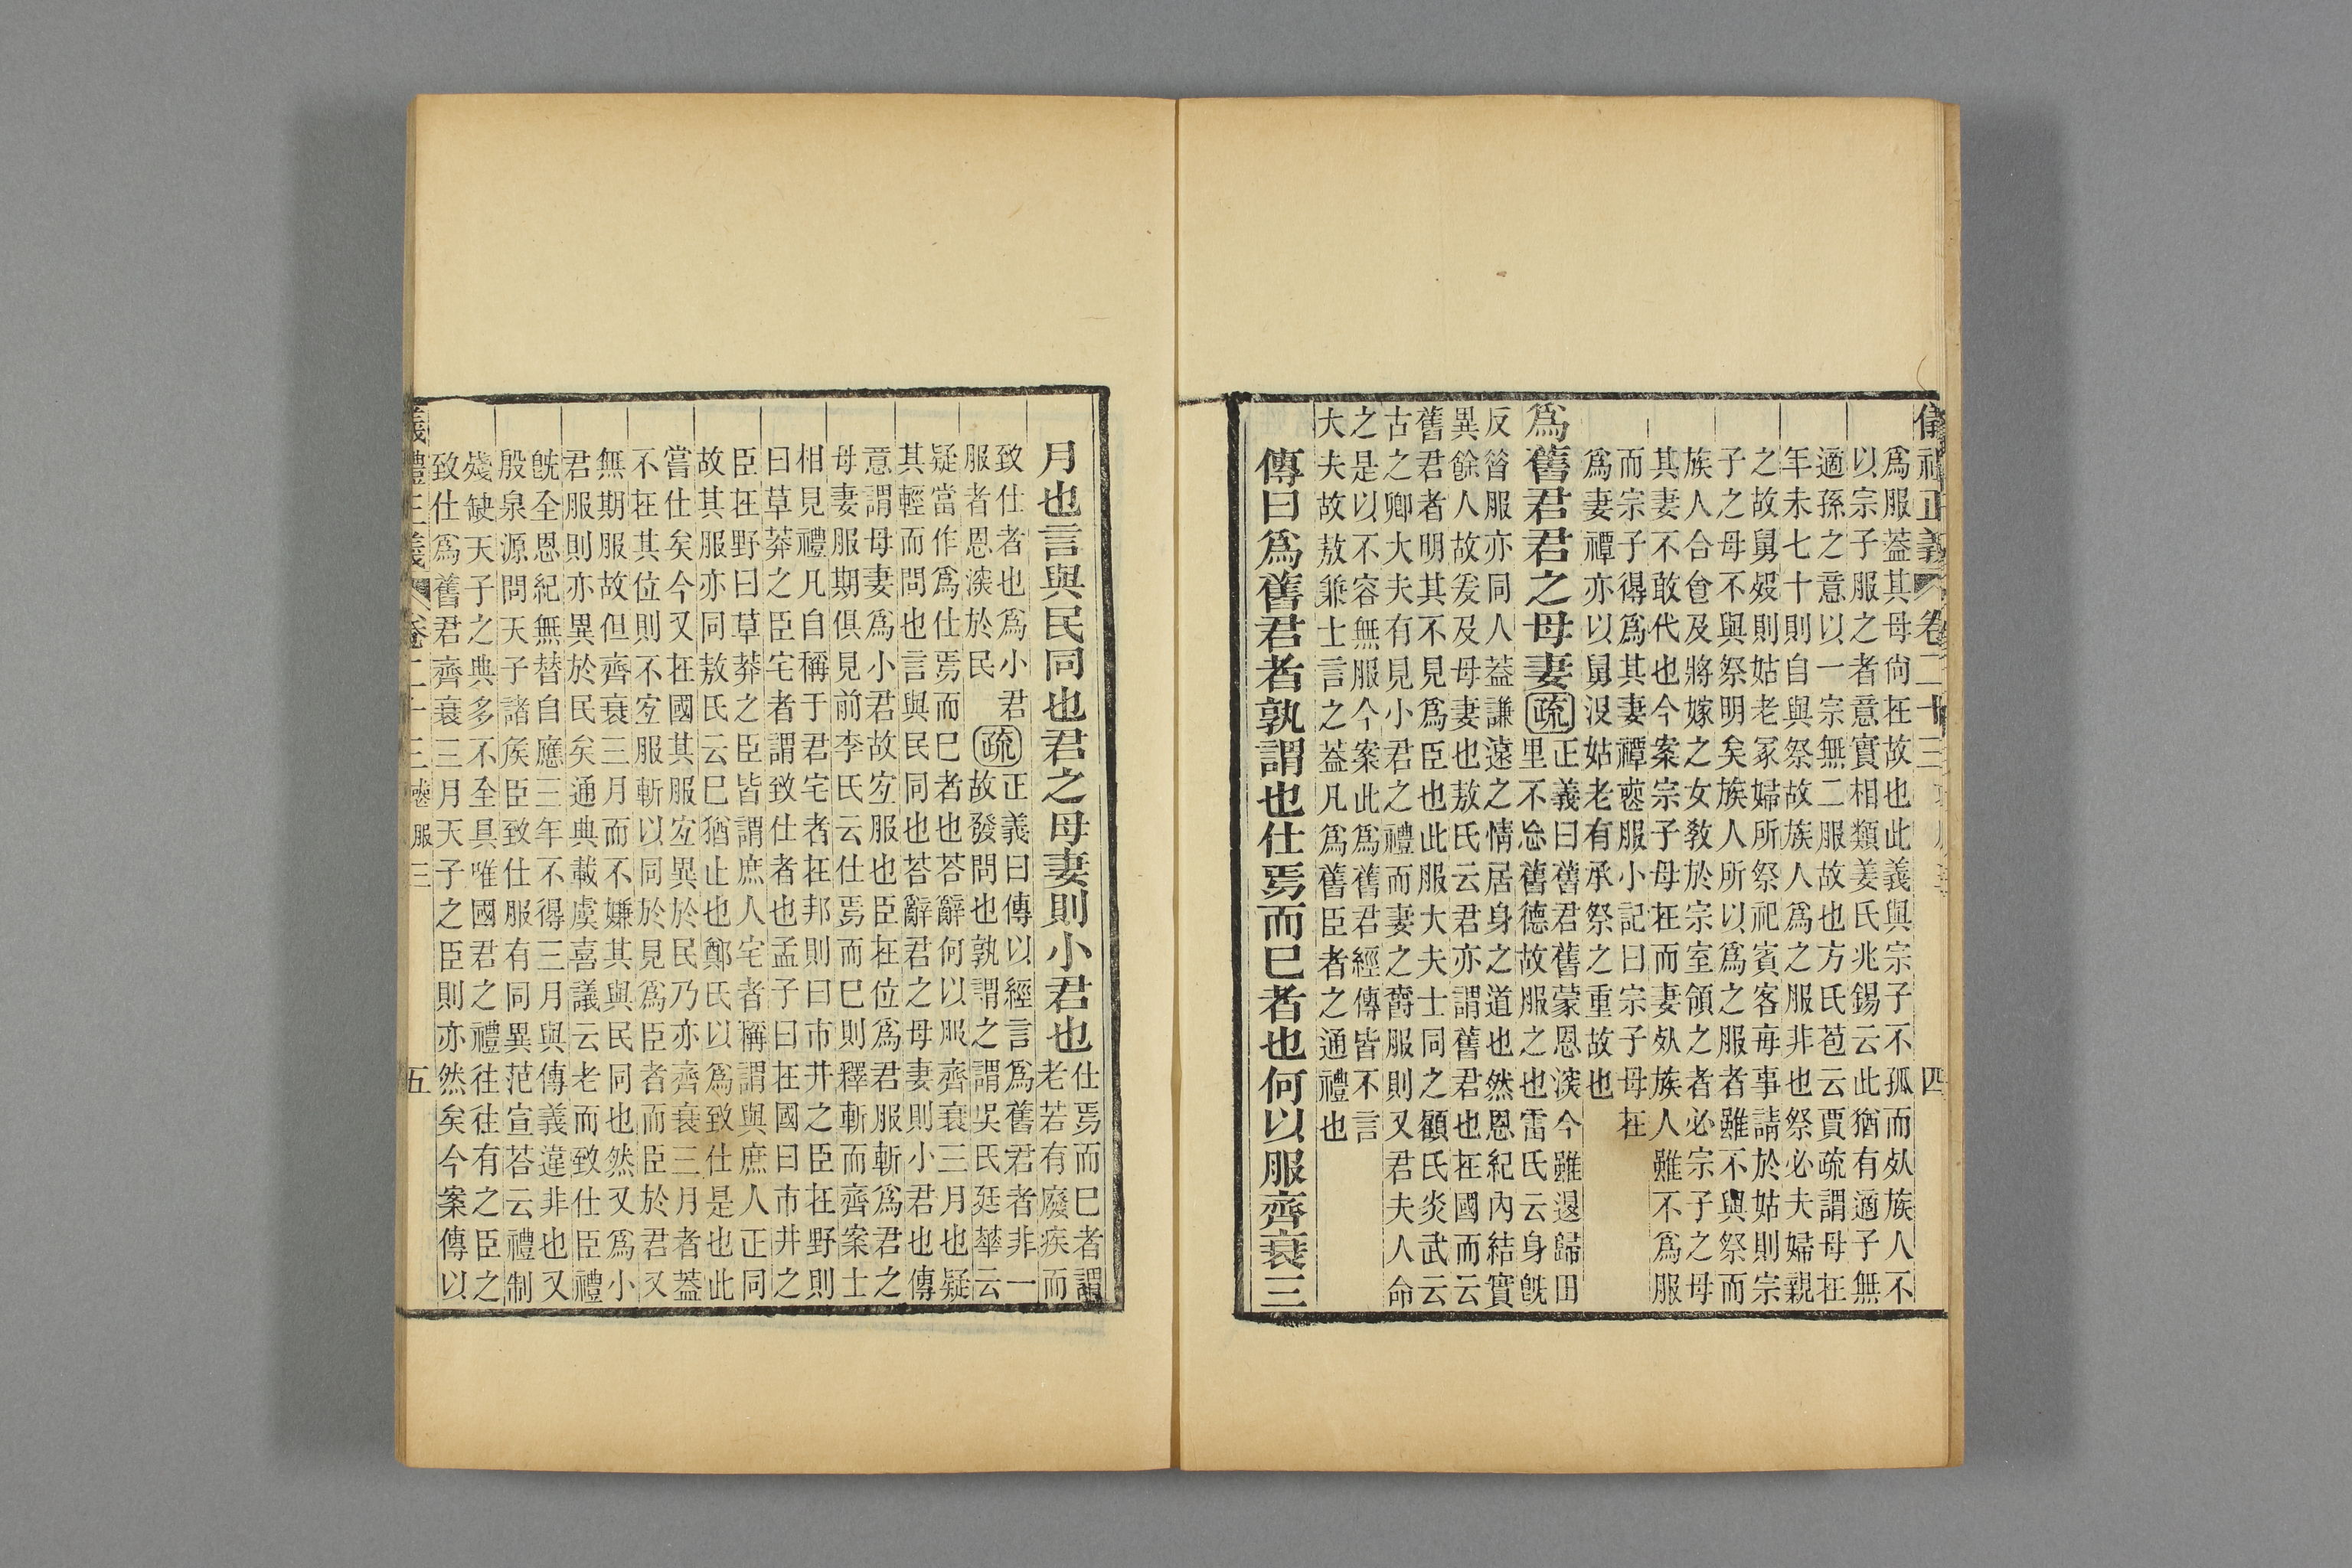 儀禮正義 卷二十三 四
爲服葢其母尙在故也此義與宗子不孤而死族人不
以宗子服之者意實相類姜氏兆錫云此猶有適子無
適孫之意以一宗無二服故也方氏苞云賈疏謂母在
年未七十則自與祭故族人爲之服非也祭必夫婦親
之故舅歿則姑老冢婦所祭祀賓客每事請於姑則宗
子之母不與祭明矣族人所以爲之服者雖不與祭而
族人合食及將嫁之女敎於宗室領之者必宗子之母
其妻不敢代也今案宗子母在而妻死族人雖不爲服
而宗子得爲其妻禫喪服小記曰宗子母在
爲妻禫亦以舅沒姑老有承祭之重故也
爲舊君君之母妻疏正義曰舊君舊蒙恩深今雖退歸田
里不忘舊德故服之也雷氏云身旣
反昝服亦同人葢謙遠之情居身之道也然恩紀內結實
異餘人故爰及母妻也敖氏云君亦謂舊君也在國而云
舊君者明其不見爲臣也此服大夫士同之顧氏炎武云
古之卿大夫有見小君之禮而妻之爵服則又君夫人命
之是以不容無服今案此爲舊君經傳皆不言
大夫故敖兼士言之葢凡爲舊臣者之通禮也
傳曰爲舊君者孰謂也仕焉而已者也何以服齊衰三
月也言與民同也君之母妻則小君也仕焉而已者謂
老若有廢疾而
致仕者也爲小君
服者恩深於民疏正義曰傳以經言爲舊君者非一
故發問也孰謂之謂吳氏廷華云
疑當作爲仕焉而已者也荅辭何以服齊衰三月也疑
其輕而問也言與民同也荅辭君之母妻則小君也傳
意謂母妻爲小君故宐服也臣在位爲君服斬爲君之
母妻服期俱見前李氏云仕焉而已則釋斬而齊案士
相見禮凡自稱于君宅者在邦則曰市井之臣在野則
曰草莽之臣宅者謂致仕者也孟子曰在國曰市井之
臣在野曰草莽之臣皆謂庶人宅者稱謂與庶人正同
故其服亦同敖氏云已猶止也鄭氏以爲致仕是也此
嘗仕矣今又在國其服宐異於民乃亦齊衰三月者葢
不在其位則不宐服斬以同於見爲臣者而臣於君又
無期服故但齊衰三月而不嫌其與民同也然又爲小
君服則亦異於民矣通典載虞喜議云老而致仕臣禮
旣全恩紀無替自應三年不得三月與傳義違非也又
殷泉源問天子諸矦臣致仕服有同異范宣荅云禮制
殘缺天子之典多不全具唯國君之禮往往有之臣之
致仕爲舊君齊衰三月天子之臣則亦然矣今案傳以
儀禮正義 卷二十三 喪服三 五